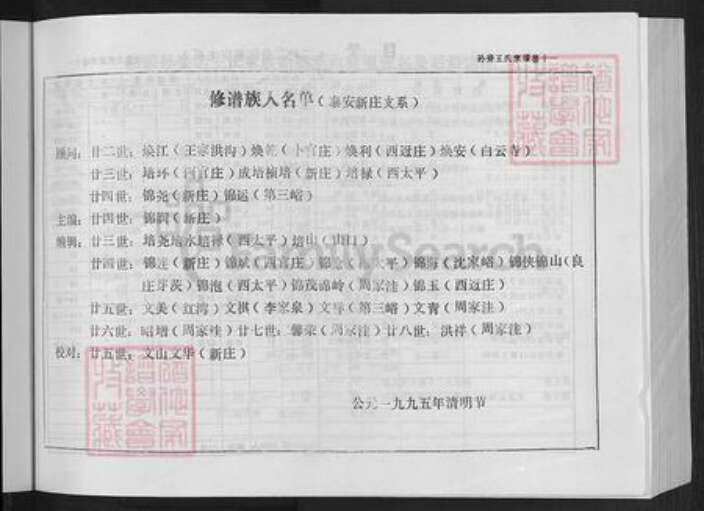 孙脊王氏宗谱卷十一
修谱族人名单（泰安新庄支系）
顾问：廿二世：焕江（王家洪沟）焕乾（卜官庄）焕利（西逥庄）焕安（白云寺）
廿三世：培环（西官庄）成培桢培（新庄）培禄（西太平）
廿四世：锦尧（新庄）锦运（第三峪）
主编：廿四世：锦润（新庄）
编辑：廿三世：培尧培永培禄（西太平）培山（山口）
廿四世：锦连（新庄）锦斌（西官庄）锦（太平）锦海（沈家峪）锦侠锦山（良
庄芽茨）锦泡（西太平）锦茂锦岭（周家洼）锦玉（西逥庄）
廿五世：文美（红湾）文祺（李家泉）文导（第三峪）文青（周家洼）
廿六世：昭增（周家洼）廿七世：馨荣（周家洼）廿八世：洪祥（周家洼）
校对：廿五世：文山文华（新庄）
公元一九九五年清明节
FamilySearch